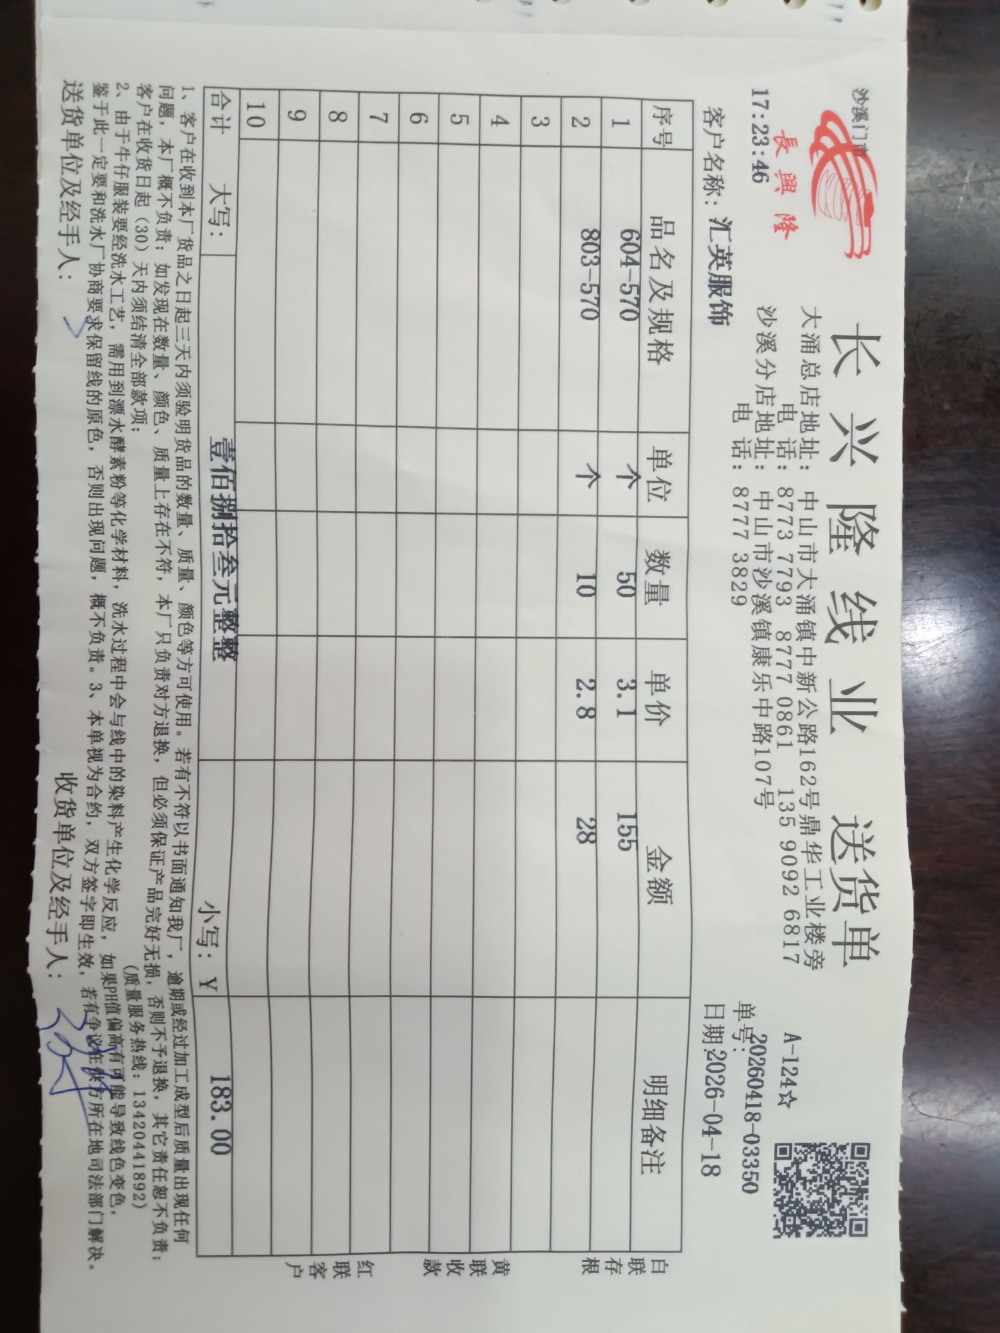 长兴隆线业 送货单
沙溪门市
長興隆
17:23:46
大涌总店地址：中山市大涌镇中新公路162号鼎华工业楼旁
电 话：8773 7793 8777 0861 135 9092 6817
沙溪分店地址：中山市沙溪镇康乐中路107号
电 话：8777 3829
A-124☆
单号：20260418-03350
客户名称：汇英服饰
日期:2026-04-18
序号 品名及规格 单位 数量 单价 金额 明细备注
1 604-570 个 50 3.1 155
2 803-570 个 10 2.8 28
3
4
5
6
7
8
9
10
合计 大写： 壹佰捌拾叁元整整 小写：￥ 183.00
白联存根
黄联收款
红联客户
1、客户在收到本厂货品之日起三天内须验明货品的数量、质量、颜色等方可使用。若有不符以书面通知我厂，逾期或经过加工成型后质量出现任何
问题，本厂概不负责；如发现在数量、颜色、质量上存在不符，本厂只负责对方退换，但必须保证产品完好无损，否则不予退换，其它责任恕不负责；
客户在收货日起（30）天内须结清全部款项； (质量服务热线：13420441892)
2、由于牛仔服装要经洗水工艺，需用到漂水酵素粉等化学材料，洗水过程中会与线中的染料产生化学反应，如果PH值偏高有可能导致线色变色，
鉴于此一定要和洗水厂协商要求保留线的原色，否则出现问题，概不负责。3、本单视为合约，双方签字即生效，若有争议在供方所在地司法部门解决。
送货单位及经手人： 收货单位及经手人：